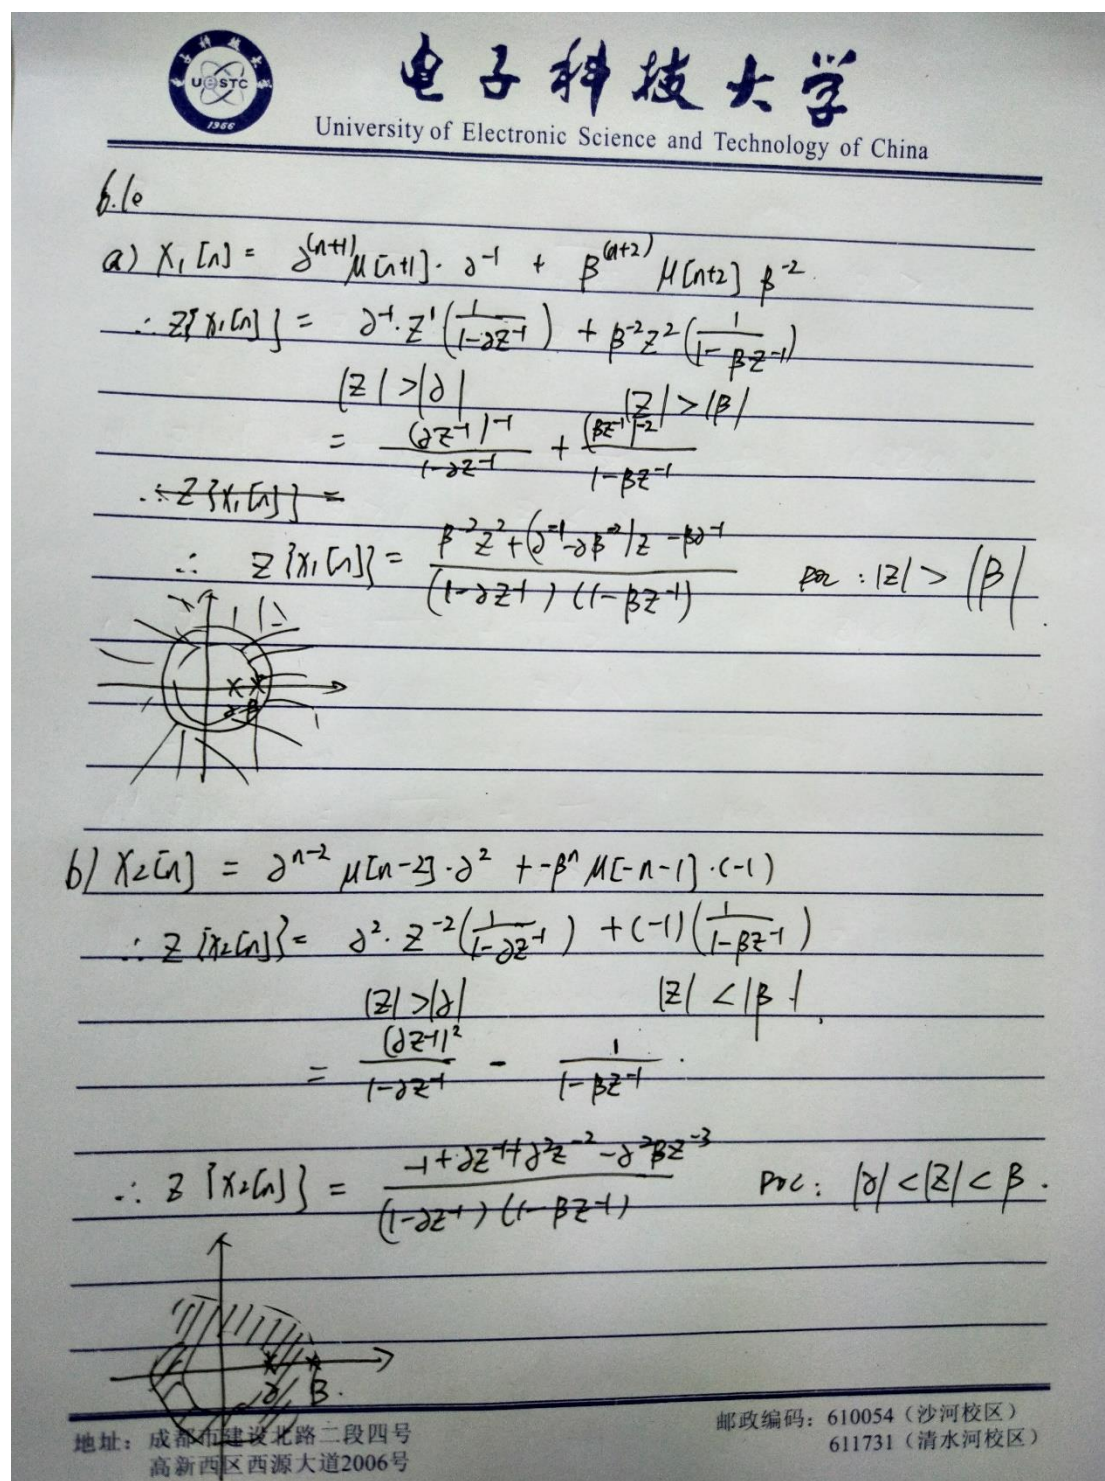 UESTC
1956
电子科技大学
University of Electronic Science and Technology of China
6.10
a) X₁[n] = α^(n+1) μ[n+1]·α^-1 + β^(n+2) μ[n+2] β^-2
∴ Z{X₁[n]} = α^-1·Z^1(1/(1-αZ^-1)) + β^-2 Z^2(1/(1-βZ^-1))
|Z|>|α| |Z|>|β|
= (αZ^-1)^-1/(1-αZ^-1) + (βZ^-1)^-2/(1-βZ^-1)
∴ Z{X₁[n]} =
∴ Z{X₁[n]} = (β^-2 Z^2+(α^-1-αβ^-2)Z-βα^-1)/((1-αZ^-1)(1-βZ^-1)) ROC : |Z| > |β|
α β
b) X₂[n] = α^n-2 μ[n-2]·α^2 + -β^n μ[-n-1]·(-1)
∴ Z{X₂[n]} = α^2·Z^-2(1/(1-αZ^-1)) +(-1)(1/(1-βZ^-1))
|Z|>|α| |Z|<|β|
= (αZ^-1)^2/(1-αZ^-1) - 1/(1-βZ^-1)
∴ Z{X₂[n]} = (-1+αZ^-1+α^2Z^-2-α^2βZ^-3)/((1-αZ^-1)(1-βZ^-1)) ROC: |α|<|Z|<β.
α β.
地址：成都市建设北路二段四号
高新西区西源大道2006号
邮政编码：610054（沙河校区）
611731（清水河校区）